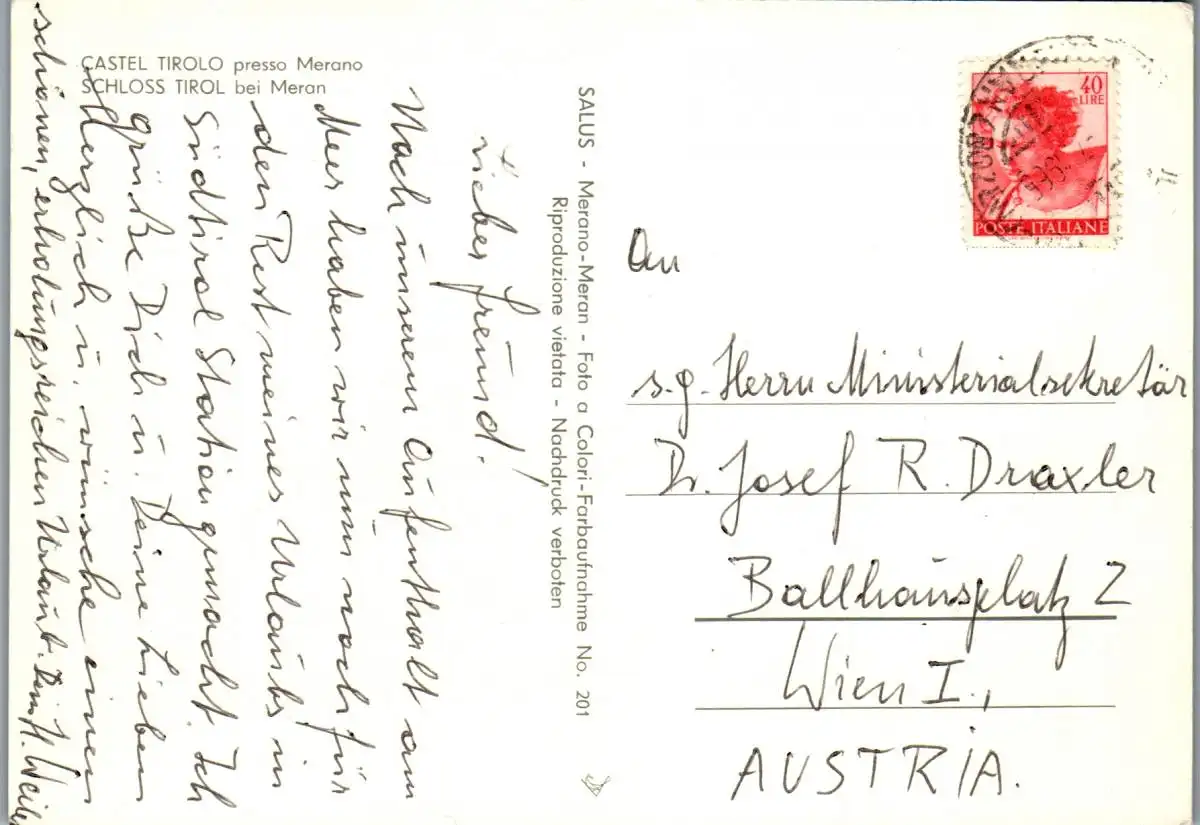 CASTEL TIROLO presso Merano
SCHLOSS TIROL bei Meran
Lieber Freund!
Nach unserem Aufenthalt am
Meer haben wir nun noch für
den Rest meines Urlaubs in
Südtirol Station gmacht. Ich
grüße Dich u. Deine Lieben
Herzlich u. wünsche einen
schönen, erholungsreichen Urlaub. Dein H. Weiler
SALUS - Merano-Meran - Foto a Colori-Farbaufnahme No. 201
Riproduzione vietata - Nachdruck verboten
40
LIRE
POSTE ITALIANE
An
s.g. Herrn Ministerialsekretär
Dr. Josef R. Draxler
Ballhausplatz 2
Wien I.,
AUSTRIA.